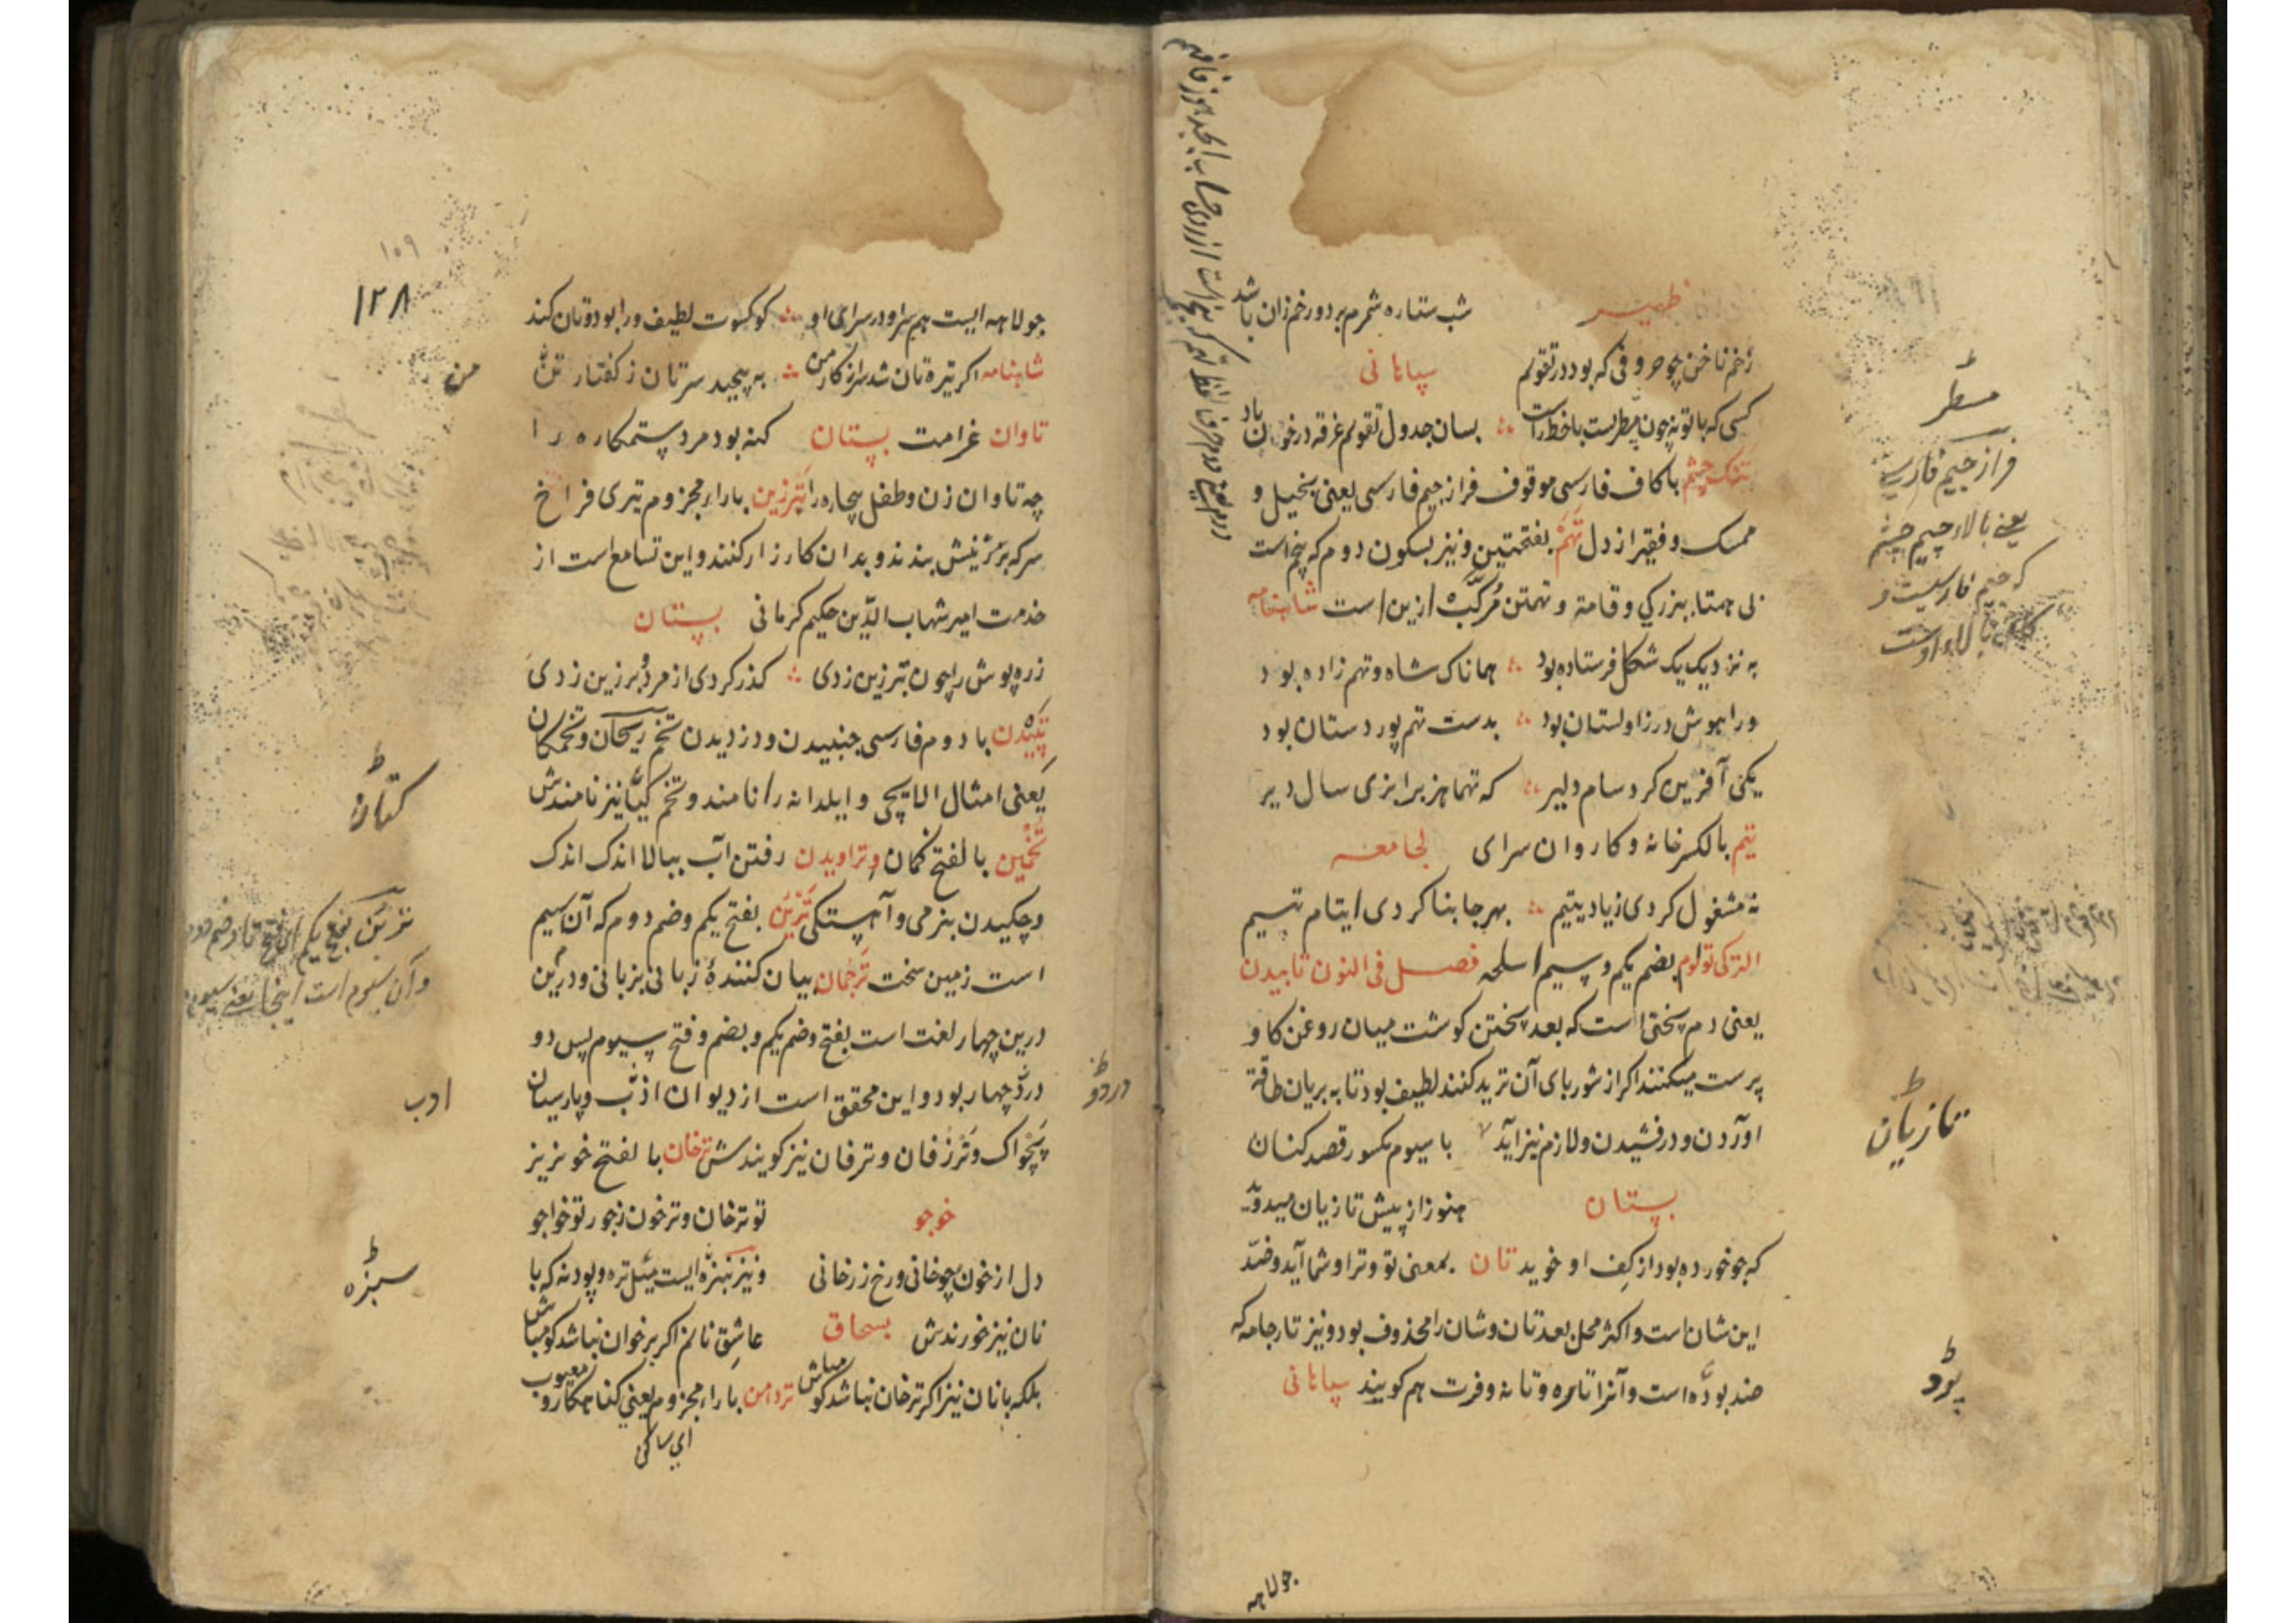 ظهیر شب ستاره شمرم بر دو رخم زان باشد
زخم ناخن چو حروفی که بود در تقویم سپاهانی
کسی که با تو نه چون مسطرست با خط راست بسان جدول تقویم غرقه در خون باد
تنک چشم با کاف فارسی موقوف فراز جیم فارسی یعنی بخیل و
ممسک و فقیر از دل تهم بفتحتین و نیز بسکون دوم که پنج است
بی همتا ببزرکی و قامة و تهمتن مرکب ازین است شاهنامه
به نزدیک یک فرستاده بود همانا که شاه و تهم زاده بود
ورا هوش در زاولستان بود بدست تهم پور دستان بود
یکی آفرین کرد سام دلیر که تهما هزبرا بزی سال دیر
تیم بالکسر خانه و کاروان سرای لجامعه
نه مشغول کردی زیاد یتیم بهر جا بنا کردی ایتام تیم
الترکی تولوم بضم یکم و سیم اسلحه فصل فی النون تابیدن
یعنی دم پختی است که بعد پختن کوشت میان روغن کاو
پرست میکنند اکر از شوربای آن ترید کنند لطیف بود تا به بریان طاقة
اوردن و درفشیدن و لازم نیز آید با سیوم مکسور قصد کنان
بستان هنوز از پیش تازیان میدوید
که جو خورده بود از کف او خوید تان بمعنی تو و ترا و شما آید و ضد
این شان است و اکثر محل بعد تان و شان را محذوف بود و نیز تار جامه که
ضد بود است و آنرا تاره و تانه و فرت هم کویند سپاهانی
مسطر
فراز جیم فارسی
یعنی بالاء جیم چشم
که جیم فارسیست و
تازیان
پود
جولاهه
۱۲۸
۱۵۹
جولاهه ایست هم سرا و در سرای او کو کسوت لطیف ورا بود و تان کند
شاهنامه اکر تیره تان شد سر از کار من به پیچید سرتان ز کفتار من
تاوان غرامت بستان کنه بود مرد ستمکاره را
چه تاوان زن و طفل بیچاره را تبرزین باراء مجزوم تبری فراخ
سر که بر زینش بندند و بدان کارزار کنند و این تسامع است از
خدمت امیر شهاب الدین حکیم کرمانی بستان
زره پوش را چون تبرزین زدی کذر کردی از مرد و بر زین زدی
تپیدن با دوم فارسی جنبیدن و دزدیدن تخم ریحان و تخمکان
یعنی امثال الایچی و ایلدانه را نامند و تخم کتان نیز نامندش
تخمین بالفتح کمان و تراویدن رفتن آب ببالا اندک اندک
و چکیدن بنرمی و آهستکی بفتح یکم و ضم دوم که آن سیم
است زمین سخت ترجمان بیان کنندهٔ زبانی بزبانی و درین
درین چهار لغت است بفتح و ضم یکم و بضم و فتح سیوم پس دو
در دو چهار بود و این محقق است از دیوان ادب و پارسیان
پچواک و ترزفان و ترفان نیز کویندش ترخان بالفتح خونریز
خوجو تو ترخان و ترخون ز جور تو خواجو
دل از خون چو خانی و رخ زرخانی و نیز سبزه ایست مثل تره و پودنه که با
نان نیز خورندش بسحاق عاشق نانم اکر بر خوان نباشد کو مباش
بلکه با نان نیز اکر ترخان نباشد کو مباش تردامن باراء مجزوم یعنی کناهکار و معیوب
ای ساکن
من
کتان
ادب
دردو
سبزه